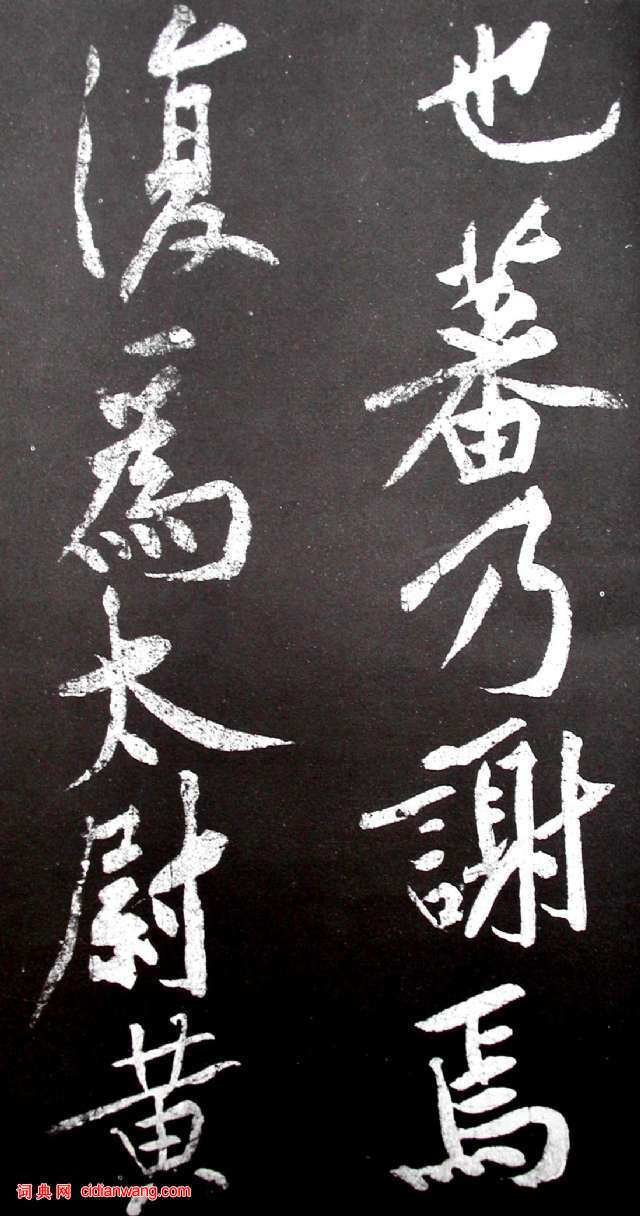 也蕃乃謝焉
復為太尉黃
词典网 cidianwang.com